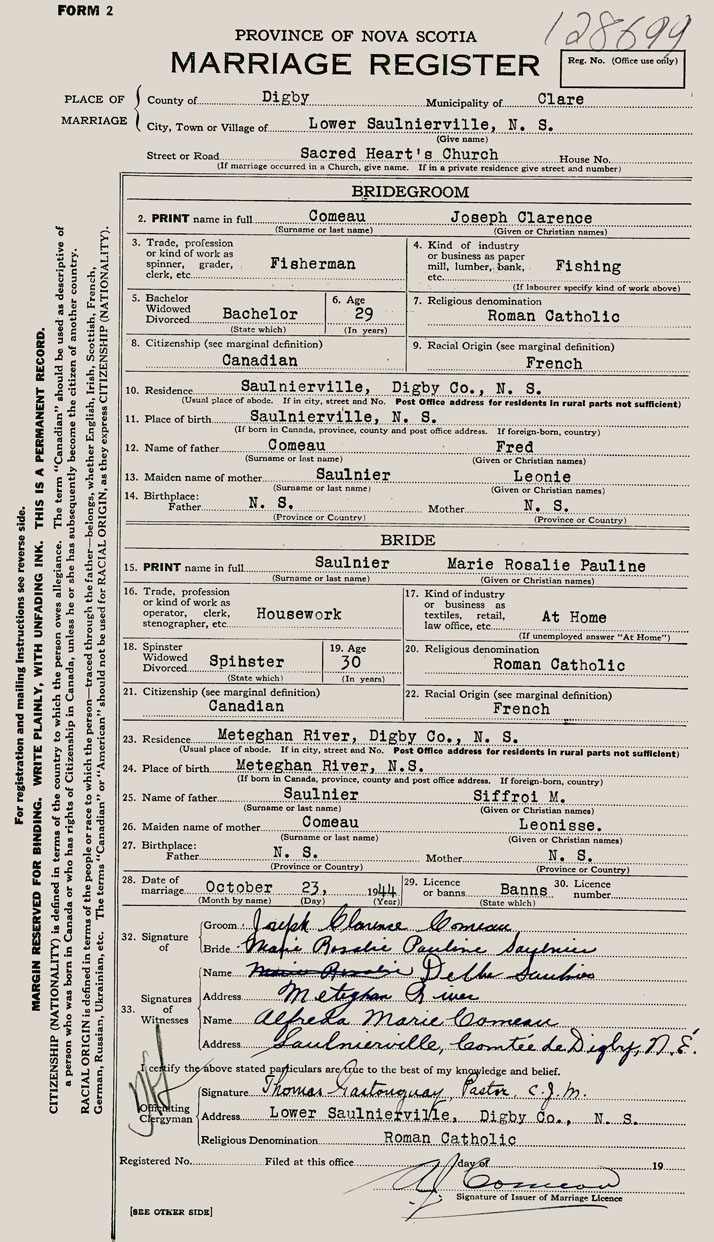 FORM 2
128699
PROVINCE OF NOVA SCOTIA
MARRIAGE REGISTER
Reg. No. (Office use only)
PLACE OF MARRIAGE
County of Digby Municipality of Clare
City, Town or Village of Lower Saulnierville, N. S.
(Give name)
Street or Road Sacred Heart's Church House No.
(If marriage occurred in a Church, give name. If in a private residence give street and number)
BRIDEGROOM
2. PRINT name in full Comeau Joseph Clarence
(Surname or last name) (Given or Christian names)
3. Trade, profession or kind of work as spinner, grader, clerk, etc. Fisherman
4. Kind of industry or business as paper mill, lumber, bank, etc. Fishing
(If labourer specify kind of work above)
5. Bachelor Widowed Divorced Bachelor
(State which)
6. Age 29
(In years)
7. Religious denomination
Roman Catholic
8. Citizenship (see marginal definition)
Canadian
9. Racial Origin (see marginal definition)
French
10. Residence Saulnierville, Digby Co., N. S.
(Usual place of abode. If in city, street and No. Post Office address for residents in rural parts not sufficient)
11. Place of birth Saulnierville, N. S.
(If born in Canada, province, county and post office address. If foreign-born, country)
12. Name of father Comeau Fred
(Surname or last name) (Given or Christian names)
13. Maiden name of mother Saulnier Leonie
(Surname or last name) (Given or Christian names)
14. Birthplace:
Father N. S. Mother N. S.
(Province or Country) (Province or Country)
BRIDE
15. PRINT name in full Saulnier Marie Rosalie Pauline
(Surname or last name) (Given or Christian names)
16. Trade, profession or kind of work as operator, clerk, stenographer, etc. Housework
17. Kind of industry or business as textiles, retail, law office, etc. At Home
(If unemployed answer "At Home")
18. Spinster Widowed Divorced Spihster
(State which)
19. Age 30
(In years)
20. Religious denomination
Roman Catholic
21. Citizenship (see marginal definition)
Canadian
22. Racial Origin (see marginal definition)
French
23. Residence Meteghan River, Digby Co., N. S.
(Usual place of abode. If in city, street and No. Post Office address for residents in rural parts not sufficient)
24. Place of birth Meteghan River, N.S.
(If born in Canada, province, county and post office address. If foreign-born, country)
25. Name of father Saulnier Siffroi M.
(Surname or last name) (Given or Christian names)
26. Maiden name of mother Comeau Leonisse.
(Surname or last name) (Given or Christian names)
27. Birthplace:
Father N. S. Mother N. S.
(Province or Country) (Province or Country)
28. Date of marriage October 23, 1944
(Month by name) (Day) (Year)
29. Licence or banns Banns
(State which)
30. Licence number
32. Signature of
Groom Joseph Clarence Comeau
Bride Marie Rosalie Pauline Saulnier
33. Signatures of Witnesses
Name Marie Rosalie
Address Meteghan River
Name Alfreda Marie Comeau
Address Saulnierville, Comtée de Digby, N.É.
I certify the above stated particulars are true to the best of my knowledge and belief.
Officiating Clergyman
Signature Thomas Pastor, C.J.M.
Address Lower Saulnierville, Digby Co., N. S.
Religious Denomination Roman Catholic
Registered No. Filed at this office day of 19
Comeau
Signature of Issuer of Marriage Licence
[SEE OTHER SIDE]
For registration and mailing instructions see reverse side.
MARGIN RESERVED FOR BINDING. WRITE PLAINLY, WITH UNFADING INK. THIS IS A PERMANENT RECORD.
CITIZENSHIP (NATIONALITY) is defined in terms of the country to which the person owes allegiance. The term "Canadian" should be used as descriptive of
a person who was born in Canada or who has rights of Citizenship in Canada, unless he or she has subsequently become the citizen of another country.
RACIAL ORIGIN is defined in terms of the people or race to which the person—traced through the father—belongs, whether English, Irish, Scottish, French,
German, Russian, Ukrainian, etc. The terms "Canadian" or "American" should not be used for RACIAL ORIGIN, as they express CITIZENSHIP (NATIONALITY).